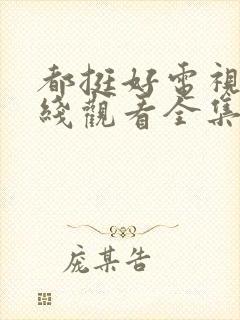 都挺好電視
綫觀看全集
庞某告